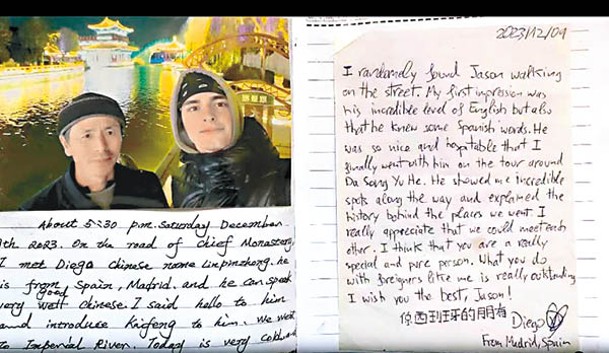 About 5:30 p.m. saturday December.
9th 2023. On the road of Chief Monastery
I met Diego Chinese name Linpinzhong. he
is from Spain, Madrid. and he can speak
very good Chinese. I said hello to him
and introduce Kaifeng to him. we went
to Imperial River. Today is very cold and
2023/12/09
I randomely found Jason walking
on the street. My first inpression was
his incredible level of English but also
that he knew some Spanish words. He
was so nice and hospitable that I
finally went with him on the tour around
Da Song Yu He. He showed me incredible
spots along the way and explained the
history behind the places we went. I
really appreciate that we could meet each
other. I think that you are a really
special and pure person. What you do
with foreigners like me is really outstanding
I wish you the best, Jason!
你西班牙的朋友
Diego
From Madrid, Spain